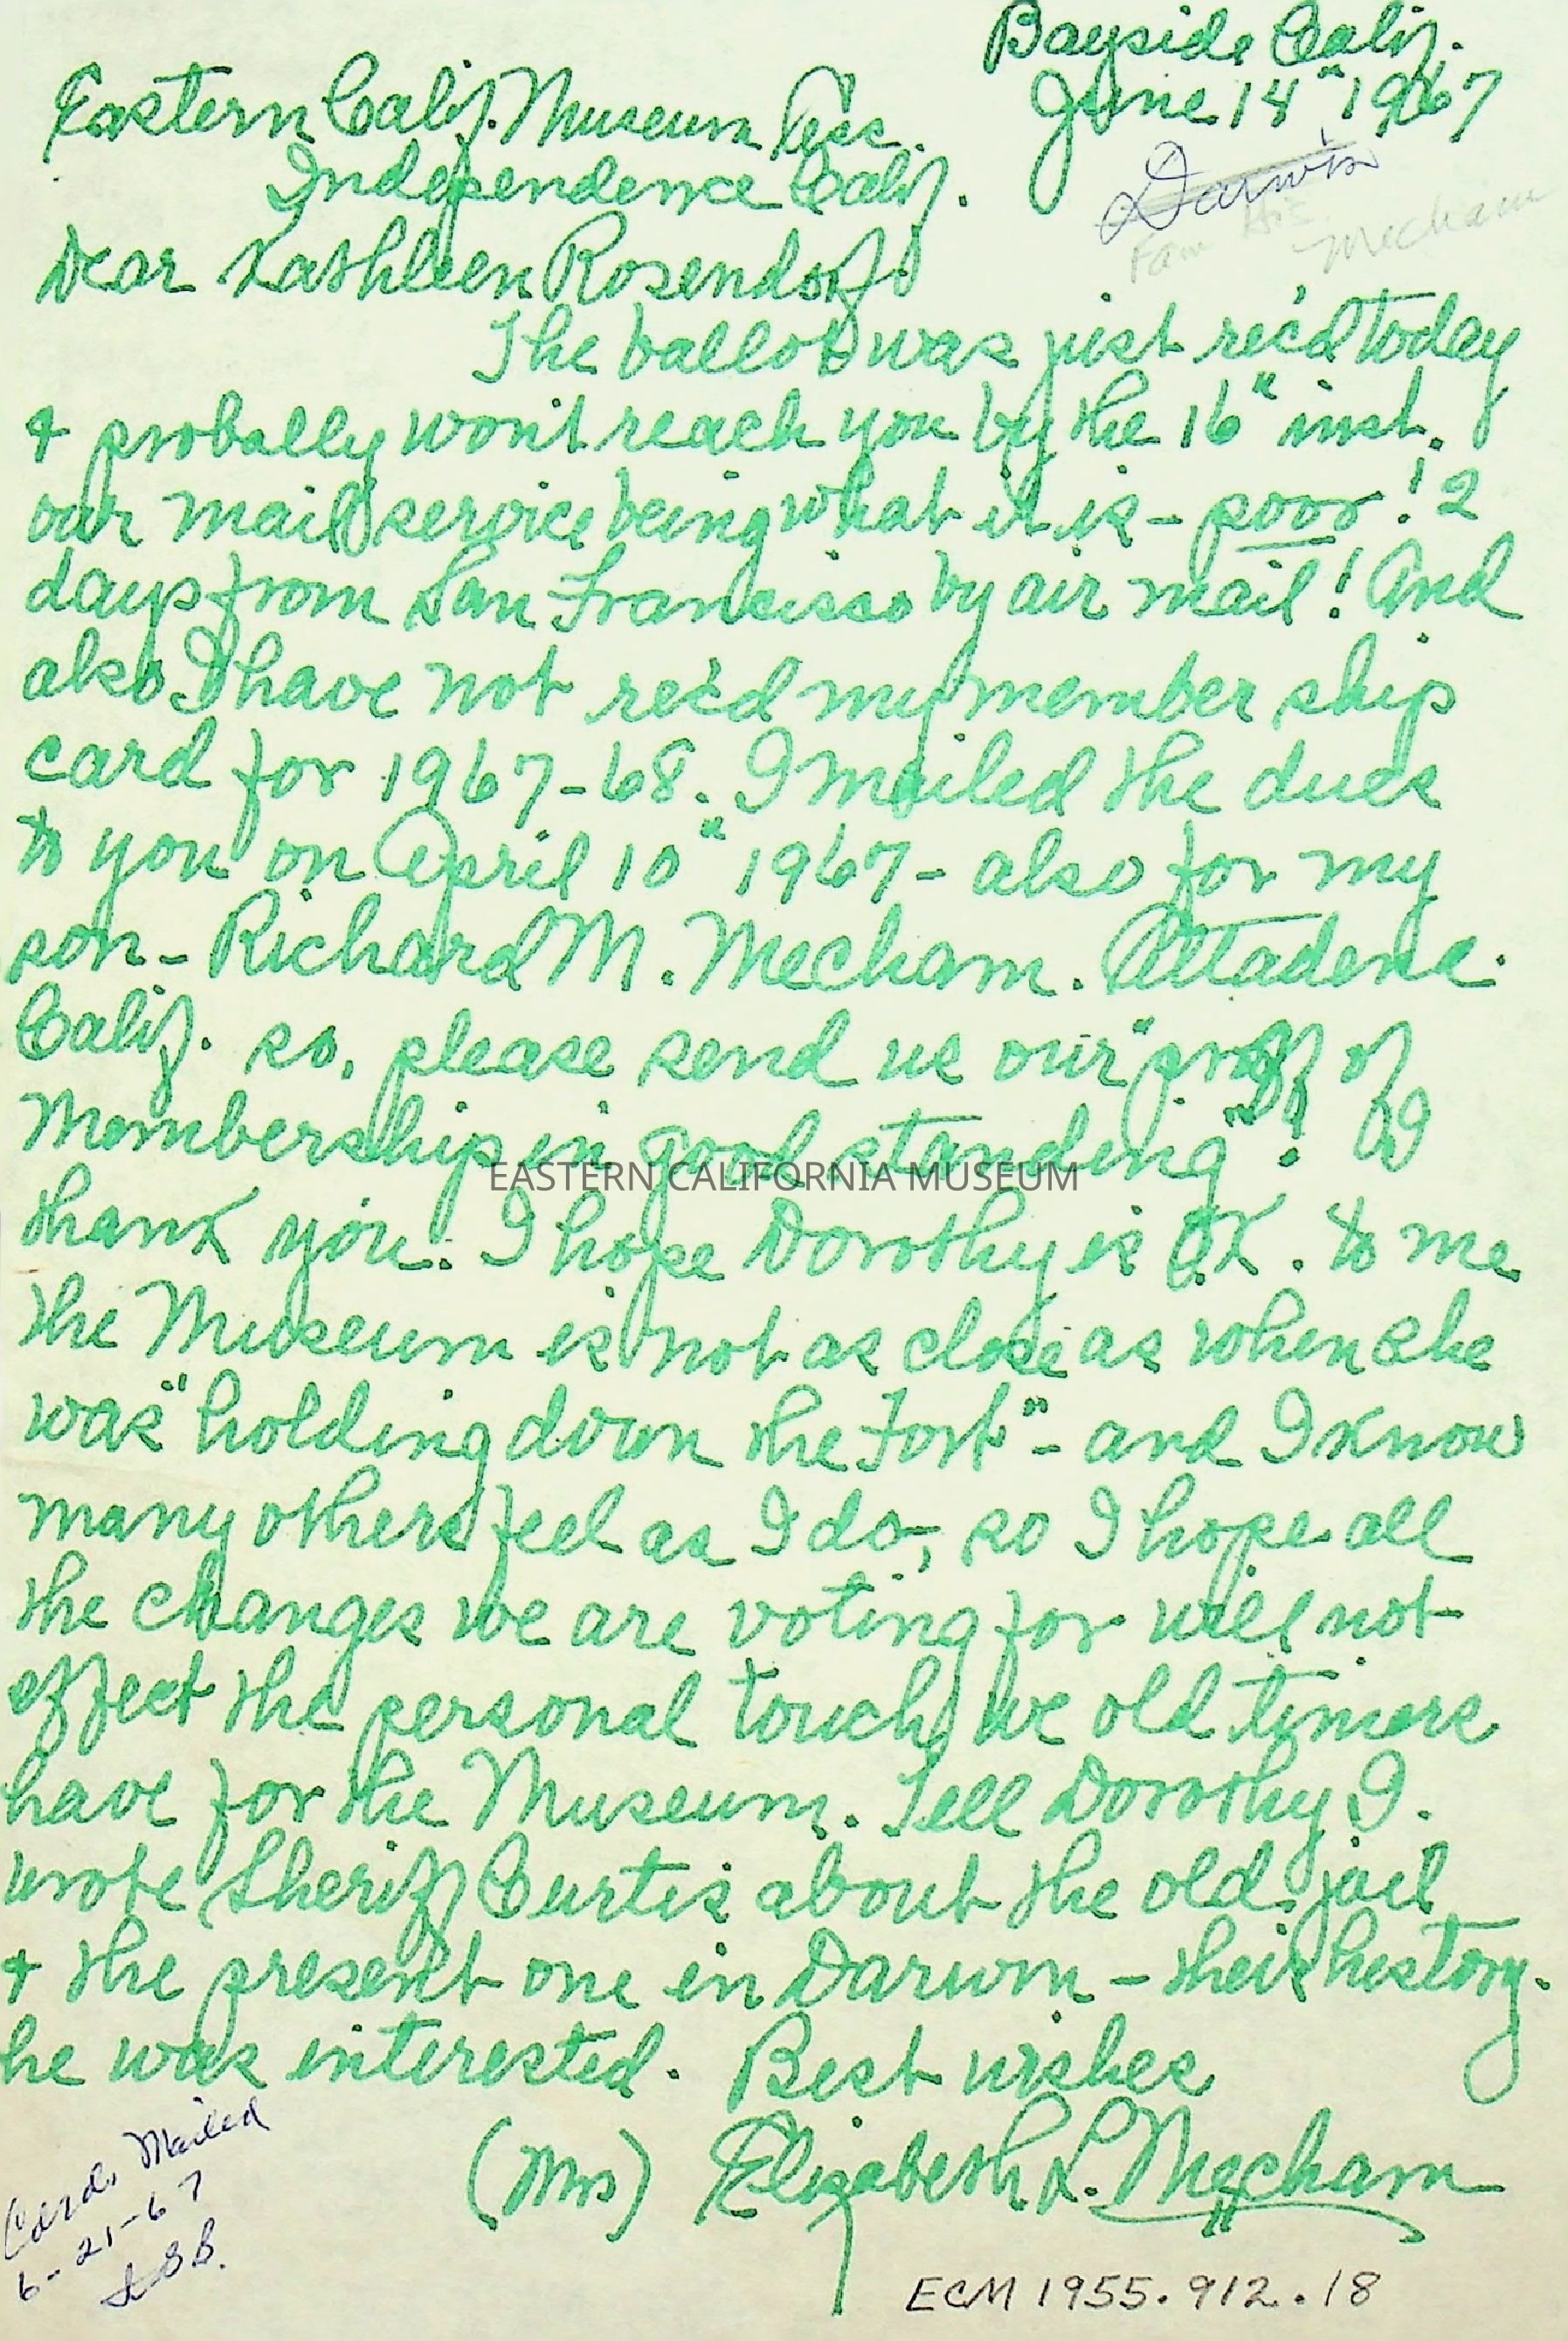 Bayside Calif.
June 14" 1967
Eastern Calif. Museum Ass.
Independence Calif.
Darwin
Fam His
Mecham
Dear Kathleen Rosendorf
The ballot was just rec'd today
& probally won't reach you by the 16" inst.
our mail service being what it is - poor! 2
days from San Francisco by air mail! And
also I have not rec'd my member ship
card for 1967-68. I mailed the dues
to you on April 10" 1967 - also for my
son - Richard M. Mecham. Altadena.
Calif. so, please send us our "proof of
Membership in good standing"!
thank you. I hope Dorothy is O.K. to me
the Museum is not as close as when she
was "holding down the Fort" - and I know
many others feel as I do, so I hope all
the changes we are voting for will not
effect the personal touch we old timers
have for the Museum. Tell Dorothy I.
wrote Sheriff Curtis about the old jail
& the present one in Darwin - their history.
he was interested. Best wishes
(Mrs) Elizabeth L. Mecham
Cards Mailed
6-21-67
ECM 1955.912.18
EASTERN CALIFORNIA MUSEUM